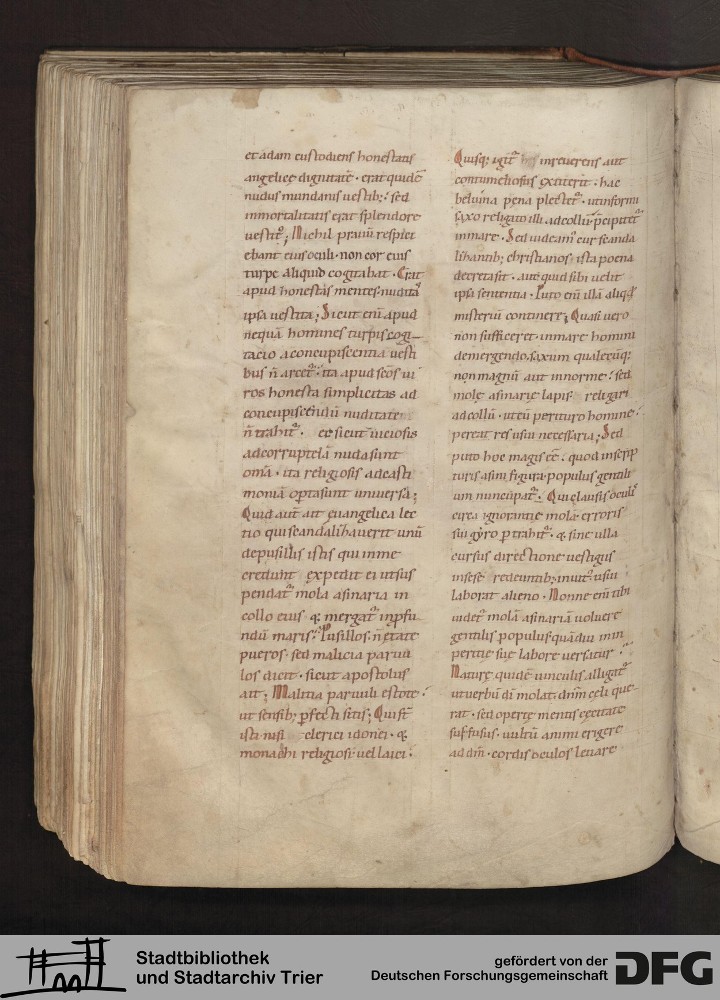 et adam custodiens honestatis
angelicę dignitatē · erat quidē
nudus mundanis vestib; · sed
inmortalitatis erat splendore
vestit᷒; Nichil pravū respici
ebant eius oculi · non cor eius
turpe aliquid cogitabat · Erat
apud honestas mentes nudita᷒
ipsa vestita; Sicut enī apud
nequā homines turpis cogi-
tacio a concupiscentia vesti
bus n̄ arcet᷒ · ita apud sc̄os ui
ros honesta simplicitas ad
concupiscendū nuditate
n̄ trahit᷒ · et sicut viciosis
ad corruptelā nuda sunt
om̄a · ita religiosis ad casti
moniā optasunt universa;
Quid aut̄ ait ęuangelica lec
tio qui scandalizaverit unū
de pusillis istis qui in me
credunt expedit ei ut sus
pendat᷒ mola asinaria in
collo eius & mergat᷒ in p̱fu
ndū maris · Pusillos · n̄ ętate
pueros · sed malicia parvu
los dicit · sicut apostolus
ait; Malitia parvuli estote ·
ut sensib; ꝑfecti sitis; Qui st̄
isti nisi clerici idonei · &
monachi religiosi vel laici ·
Quisq; igit᷒ in reverens aut
contumeliosus extiterit · hac
beluina pena plectet᷒ · ut informi
saxo religato illi ad collū p̄cipitet᷒
in mare · Sed videam᷒ cur scanda
lizantib; christianos · ista poena
decreta sit · aut quid sibi velit
ipsa sententia · Puto enī illā aliq̇d
misteriū continere; Quasi vero
non sufficeret in mare homini
demergendo · saxum qualecūq;
non magnū aut innorme · sed
molę asinarie lapis religari
ad collū · ut cū perituro homine
pereat res usui necessaria; Sed
puto hoc magis eē · quod in scrip
turis asini figura populus gentili
um nuncupat᷒ · Qui clausis oculi᷒
circa ignorantie mola erroris
sui gyro ꝑtrahit᷒ · & sine ulla
cursus directione vestigiis
in sese redeuntib; invit᷒ usui
laborat alieno · Nonne enī tibi
videt᷒ molā asinariā volvere
gentilis populus quādiu in in
peritię suę labore versatur
Naturę quidē vinculis alligat᷒
ut verbū dī molat · dn̄m celi que
rat · sed operte mentis cęcitate
suffusus · vultū animi erigere
ad dm̄ · cordis oculos levare
Stadtbibliothek
und Stadtarchiv Trier
gefördert von der
Deutschen Forschungsgemeinschaft
DFG